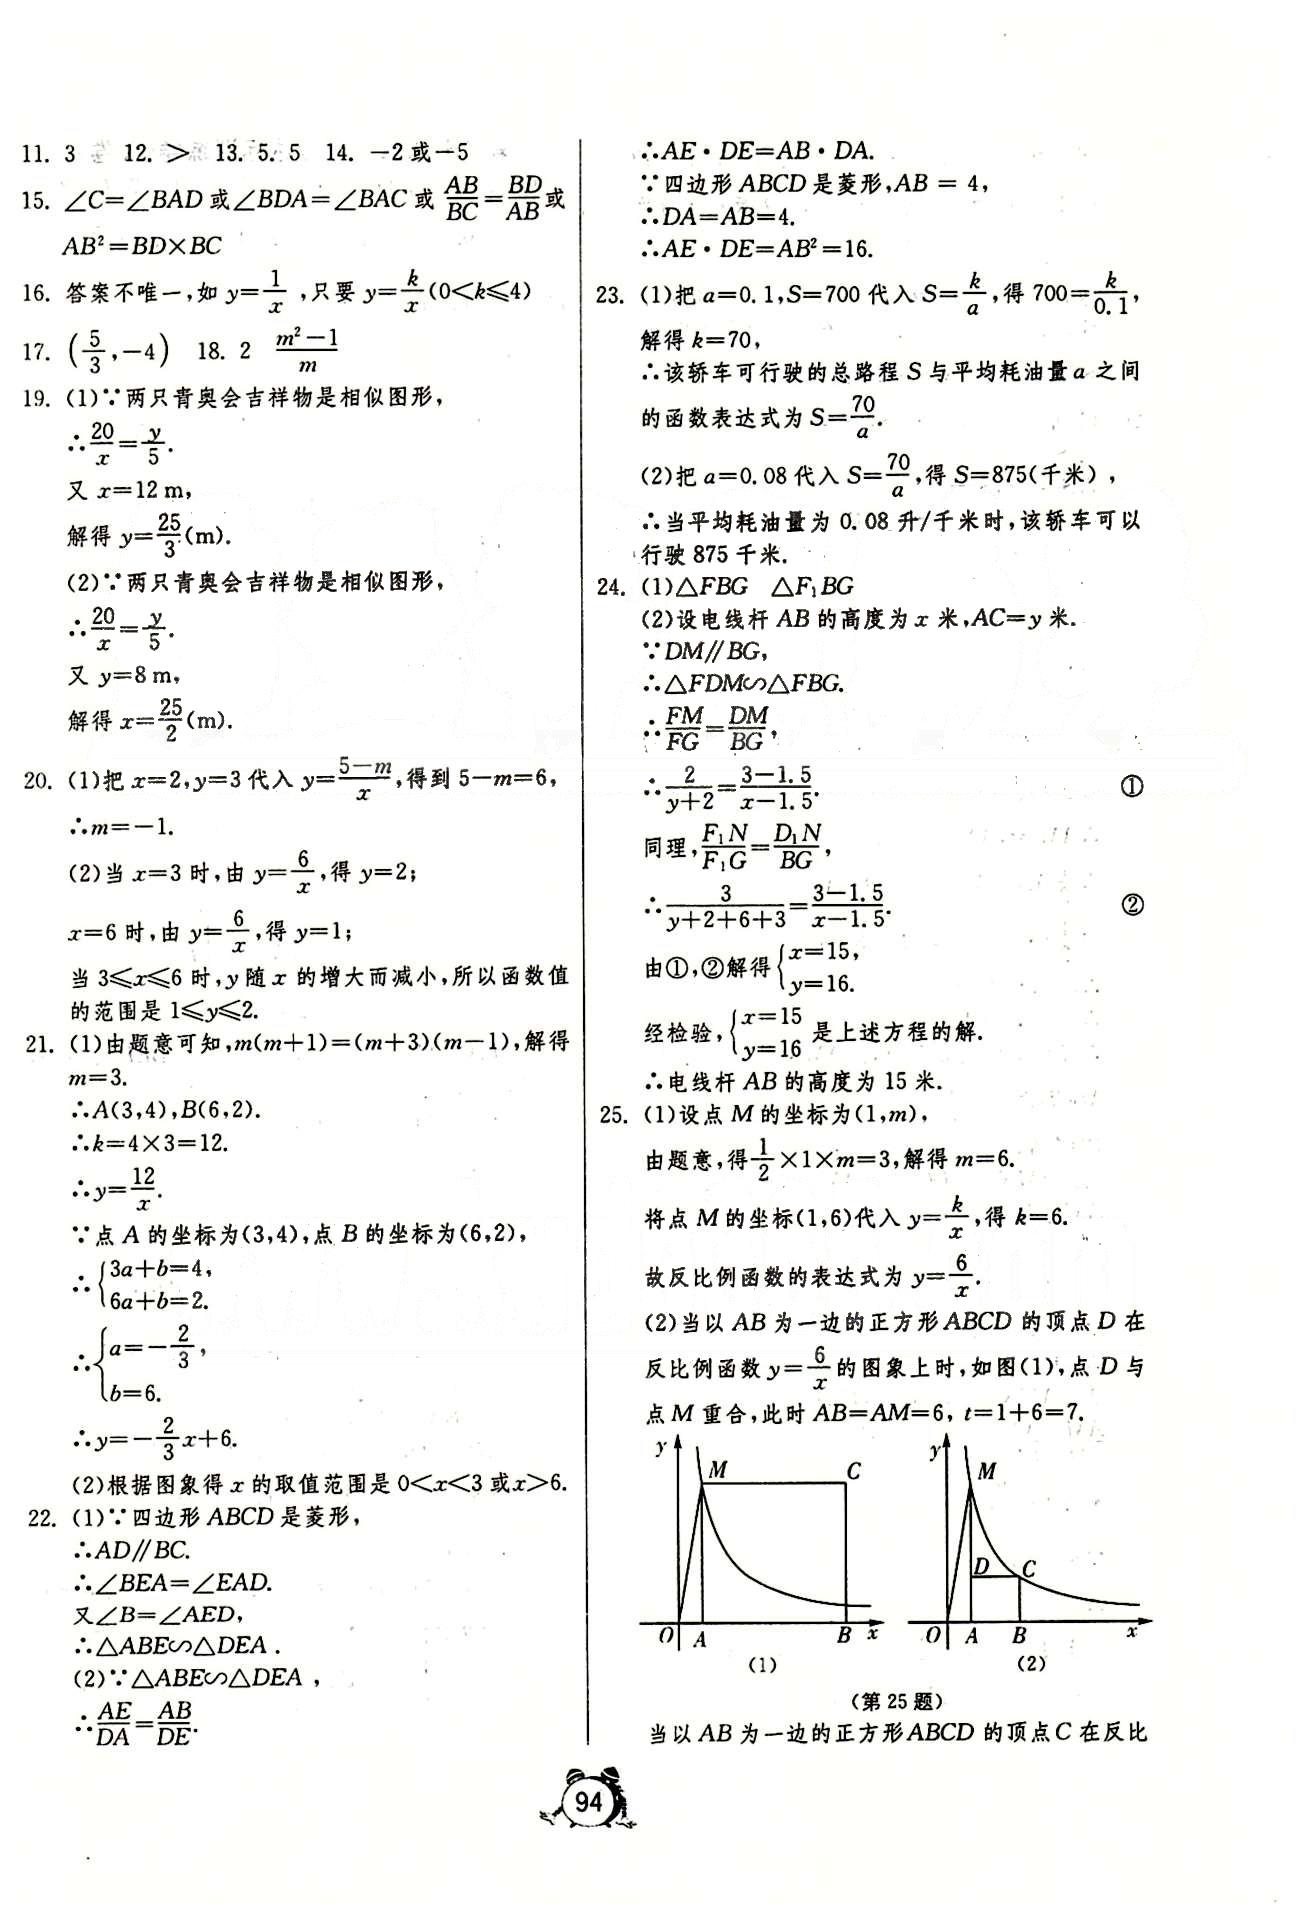 11. 3  12. >  13. 5. 5  14. －2或－5
15. ∠C=∠BAD或∠BDA=∠BAC或 AB/BC=BD/AB 或
AB²=BD×BC
16. 答案不唯一,如 y=1/x ,只要 y=k/x(0<k≤4)
17. (5/3,－4)  18. 2  (m²－1)/m
19. (1)∵两只青奥会吉祥物是相似图形,
∴20/x=y/5.
又 x=12 m,
解得 y=25/3(m).
(2)∵两只青奥会吉祥物是相似图形,
∴20/x=y/5.
又 y=8 m,
解得 x=25/2(m).
20. (1)把 x=2,y=3代入 y=(5－m)/x,得到 5－m=6,
∴m=－1.
(2)当 x=3 时,由 y=6/x,得 y=2;
x=6 时,由 y=6/x,得 y=1;
当 3≤x≤6 时,y 随 x 的增大而减小,所以函数值
的范围是 1≤y≤2.
21. (1)由题意可知,m(m+1)=(m+3)(m－1),解得
m=3.
∴A(3,4),B(6,2).
∴k=4×3=12.
∴y=12/x.
∵点 A 的坐标为(3,4),点 B 的坐标为(6,2),
∴{3a+b=4,
6a+b=2.
∴{a=－2/3,
b=6.
∴y=－2/3x+6.
(2)根据图象得 x 的取值范围是 0<x<3 或x>6.
22. (1)∵四边形 ABCD 是菱形,
∴AD∥BC.
∴∠BEA=∠EAD.
又∠B=∠AED,
∴△ABE∽△DEA .
(2)∵△ABE∽△DEA ,
∴AE/DA=AB/DE.
∴AE·DE=AB·DA.
∵四边形 ABCD 是菱形,AB = 4,
∴DA=AB=4.
∴AE·DE=AB²=16.
23. (1)把 a=0. 1,S=700 代入 S=k/a,得 700=k/0. 1,
解得 k=70,
∴该轿车可行驶的总路程 S 与平均耗油量 a 之间
的函数表达式为 S=70/a.
(2)把 a=0. 08 代入 S=70/a,得 S=875(千米),
∴当平均耗油量为 0. 08 升/千米时,该轿车可以
行驶 875 千米.
24. (1)△FBG  △F₁BG
(2)设电线杆 AB 的高度为 x 米,AC=y 米.
∵DM∥BG,
∴△FDM∽△FBG.
∴FM/FG=DM/BG,
∴2/(y+2)=(3－1. 5)/(x－1. 5). ①
同理,F₁N/F₁G=D₁N/BG,
∴3/(y+2+6+3)=(3－1. 5)/(x－1. 5). ②
由①,②解得{x=15,
y=16.
经检验,{x=15
y=16 是上述方程的解.
∴电线杆 AB 的高度为 15 米.
25. (1)设点 M 的坐标为(1,m),
由题意,得1/2×1×m=3,解得 m=6.
将点 M 的坐标(1,6)代入 y=k/x,得 k=6.
故反比例函数的表达式为 y=6/x.
(2)当以 AB 为一边的正方形 ABCD 的顶点 D 在
反比例函数 y=6/x 的图象上时,如图(1),点 D 与
点 M 重合,此时 AB=AM=6, t=1+6=7.
y M C
O A B x
(1)
y M
D C
O A B x
(2)
(第 25 题)
当以 AB 为一边的正方形 ABCD 的顶点 C 在反比
94